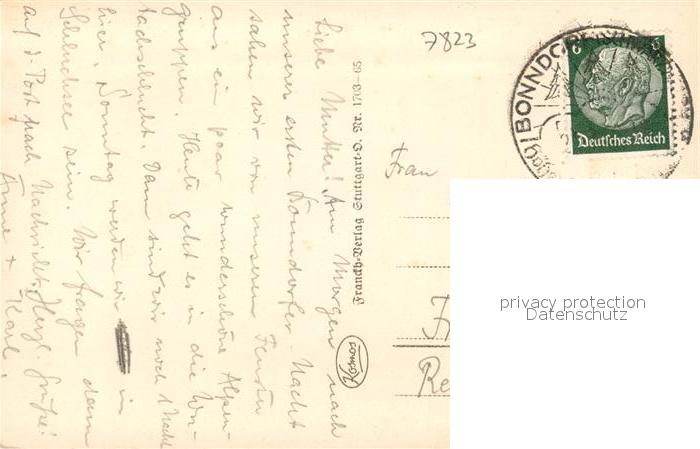 7823
Liebe Mutter! Am Morgen nach
unserer ersten Bonndorfer Nacht
sahen wir von unserem Fenster
aus ein paar wunderschöne Alpen-
gruppen. Heute geht es in die Wu-
tachschlucht. Dann sind wir noch 1 Nacht
hier. Sonntag werden wir in
Schluchsee sein. Wir fragen dann
auf d. Post nach Nachricht. Herzl. Grüße!
Änne + Karl.
Franckh-Verlag Stuttgart-O. Nr. 1703-95
Kosmos
Frau
BONNDORF
6 6
Deutsches Reich
privacy protection
Datenschutz